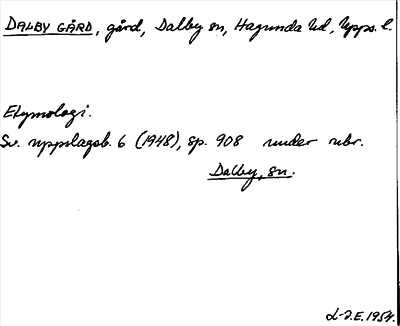 DALBY GÅRD, gård, Dalby sn, Hagunda hd, Upps. l.
Etymologi.
Sv. uppslagsb. 6 (1948), sp. 908 under rubr.
Dalby, sn.
L-J.E. 1954.